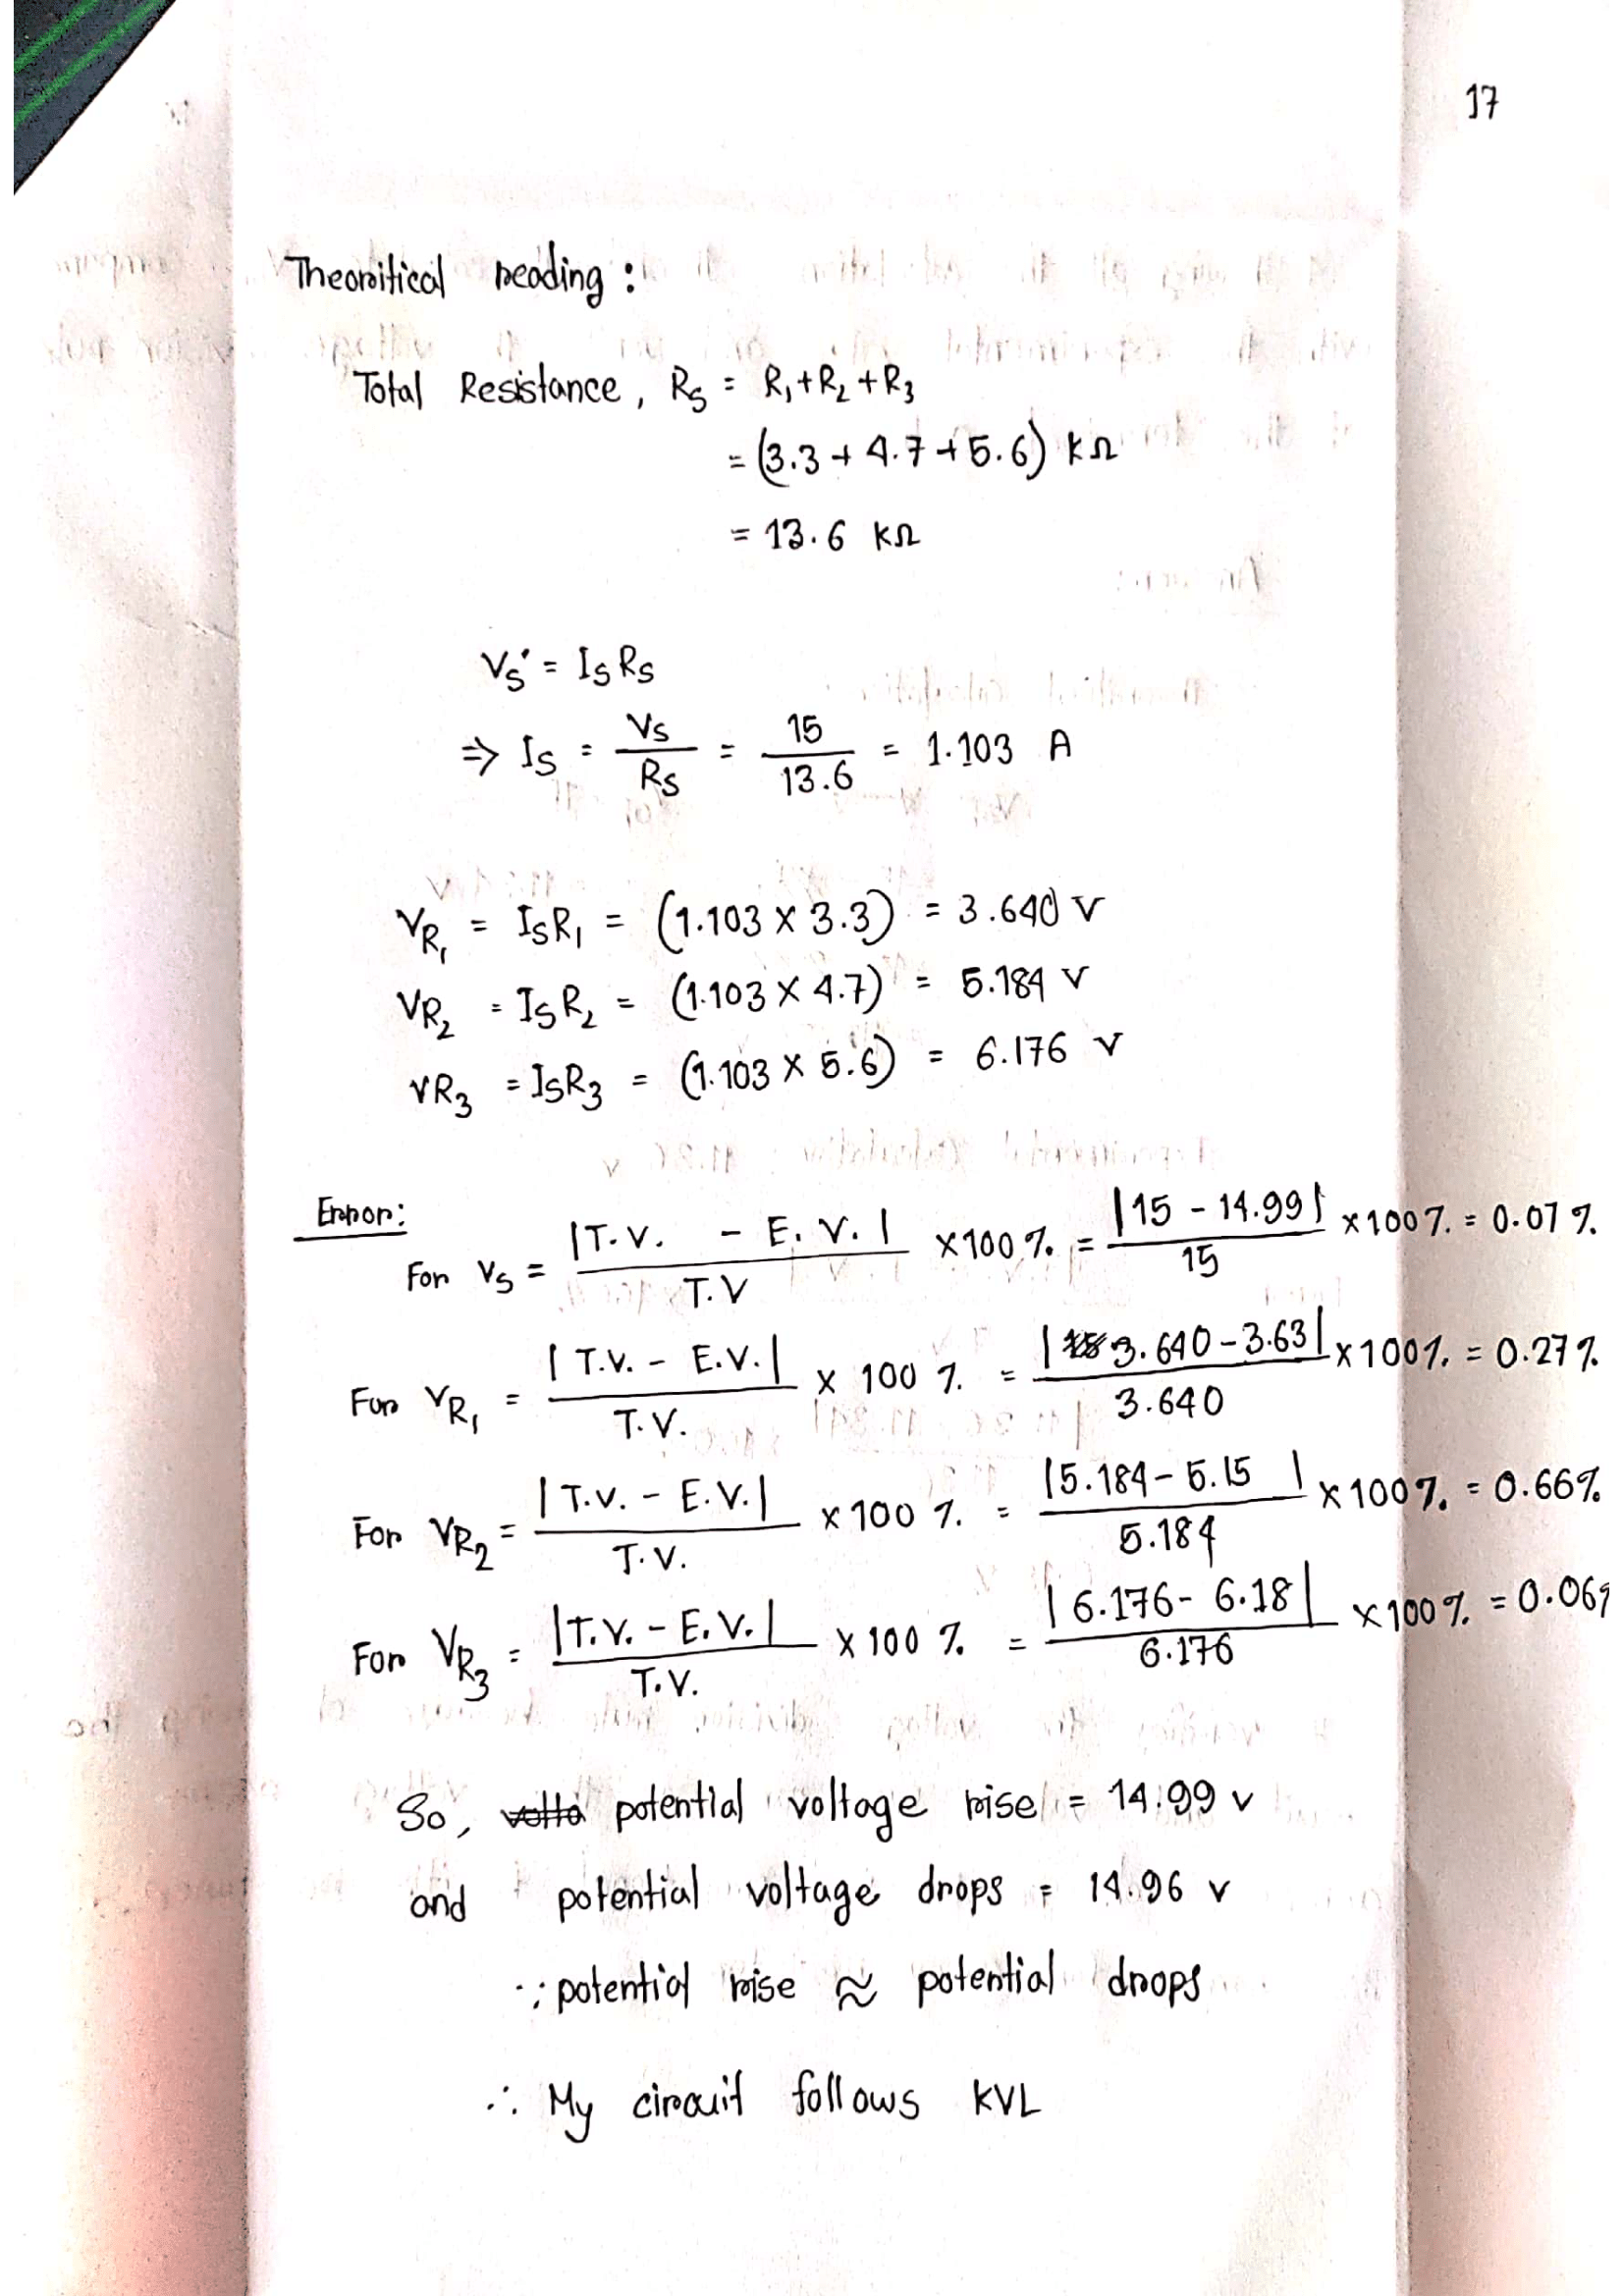 17
Theoritical reading :
Total Resistance, Rs = R₁+R₂+R₃
= (3.3 + 4.7 + 5.6) kΩ
= 13.6 kΩ
Vs = Is Rs
⇒ Is = Vs / Rs = 15 / 13.6 = 1.103 A
VR₁ = IsR₁ = (1.103 × 3.3) = 3.640 V
VR₂ = IsR₂ = (1.103 × 4.7) = 5.184 V
VR₃ = IsR₃ = (1.103 × 5.6) = 6.176 V
Error:
For Vs = |T.V. - E.V.| / T.V × 100 % = |15 - 14.99| / 15 × 100 % = 0.07 %
For VR₁ = |T.V. - E.V.| / T.V. × 100 % = |3.640 - 3.63| / 3.640 × 100 % = 0.27 %
For VR₂ = |T.V. - E.V.| / T.V. × 100 % = |5.184 - 5.15| / 5.184 × 100 % = 0.66 %
For VR₃ = |T.V. - E.V.| / T.V. × 100 % = |6.176 - 6.18| / 6.176 × 100 % = 0.06%
So, potential voltage rise = 14.99 v
and potential voltage drops = 14.96 v
∴ potential rise ≈ potential drops
∴ My circuit follows KVL